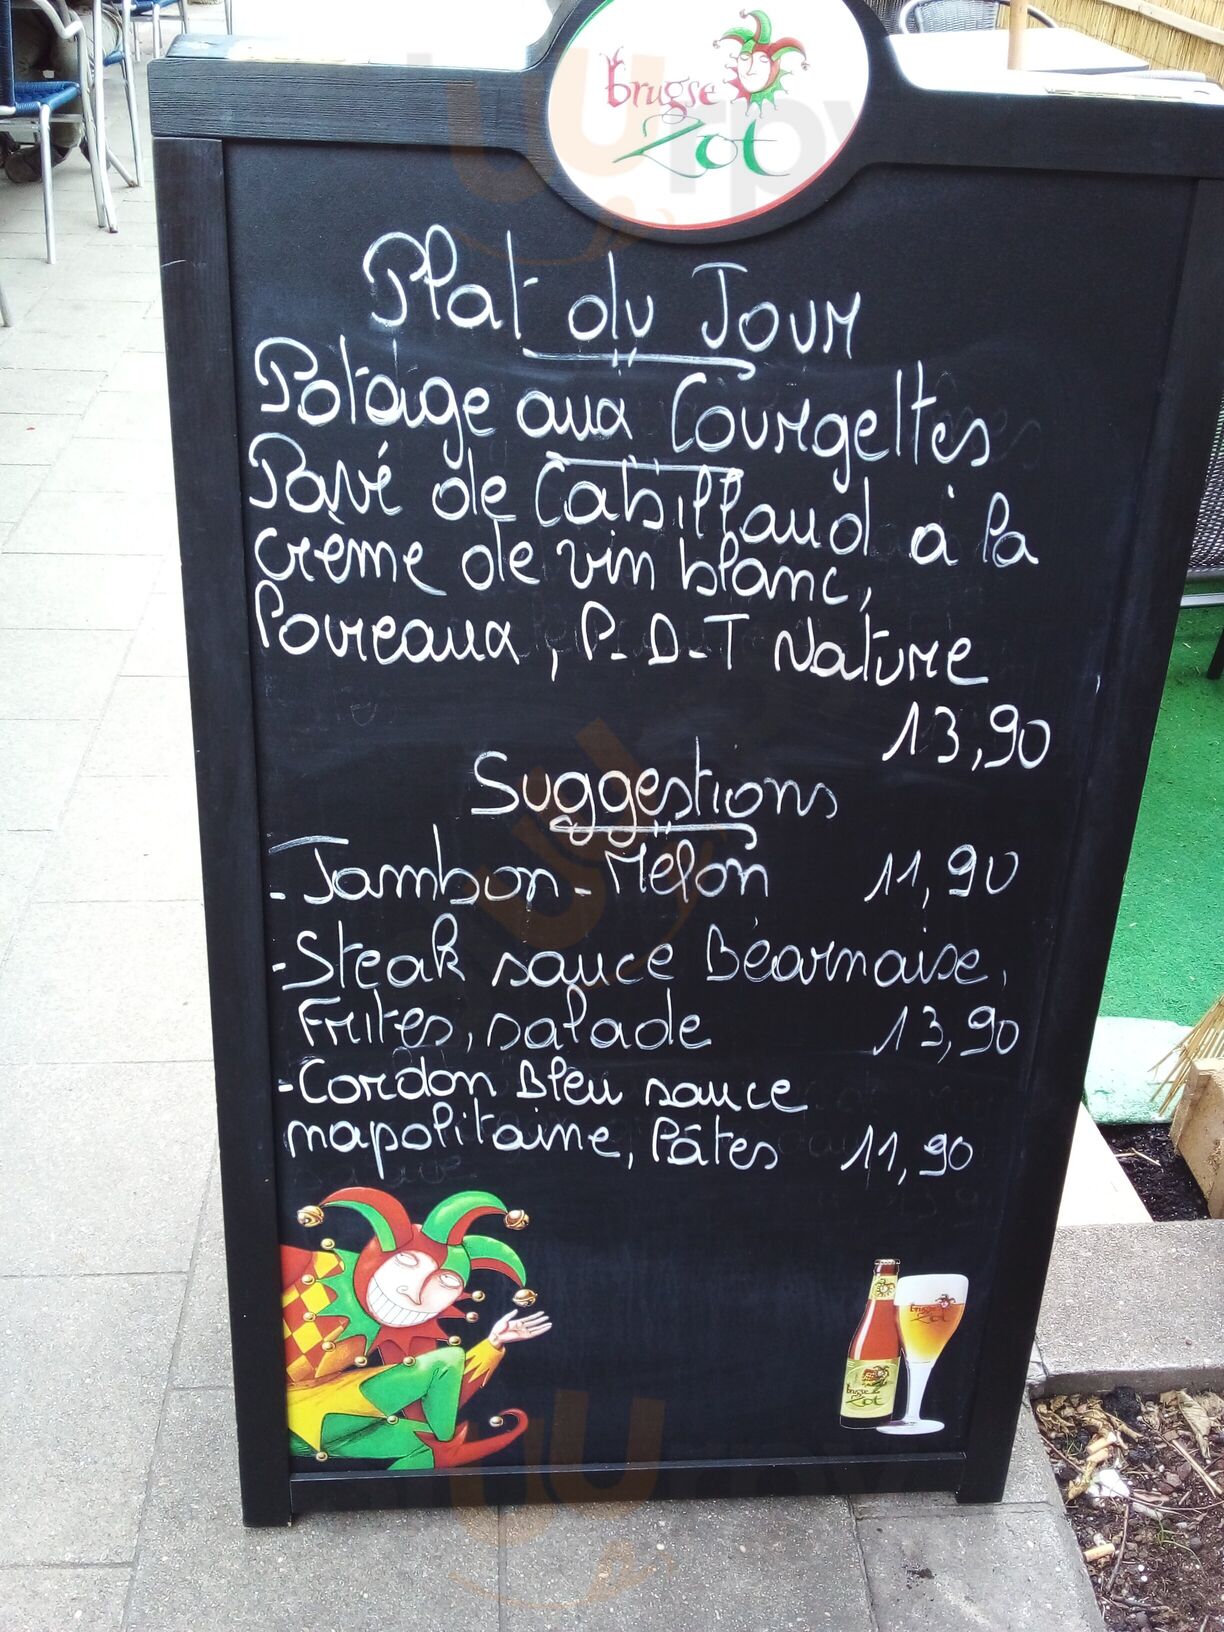 brugse
Zot
Plat du Jour
Potage aux Courgettes
Pavé de Cabillaud à la
crème de vin blanc,
Poureaux, P-D-T Nature
13,90
Suggestions
- Jambon-Melon 11,90
- Steak sauce Béarnaise,
Frites, salade 13,90
- Cordon Bleu sauce
napolitaine, Pâtes 11,90
brugse
Zot
brugse
Zot